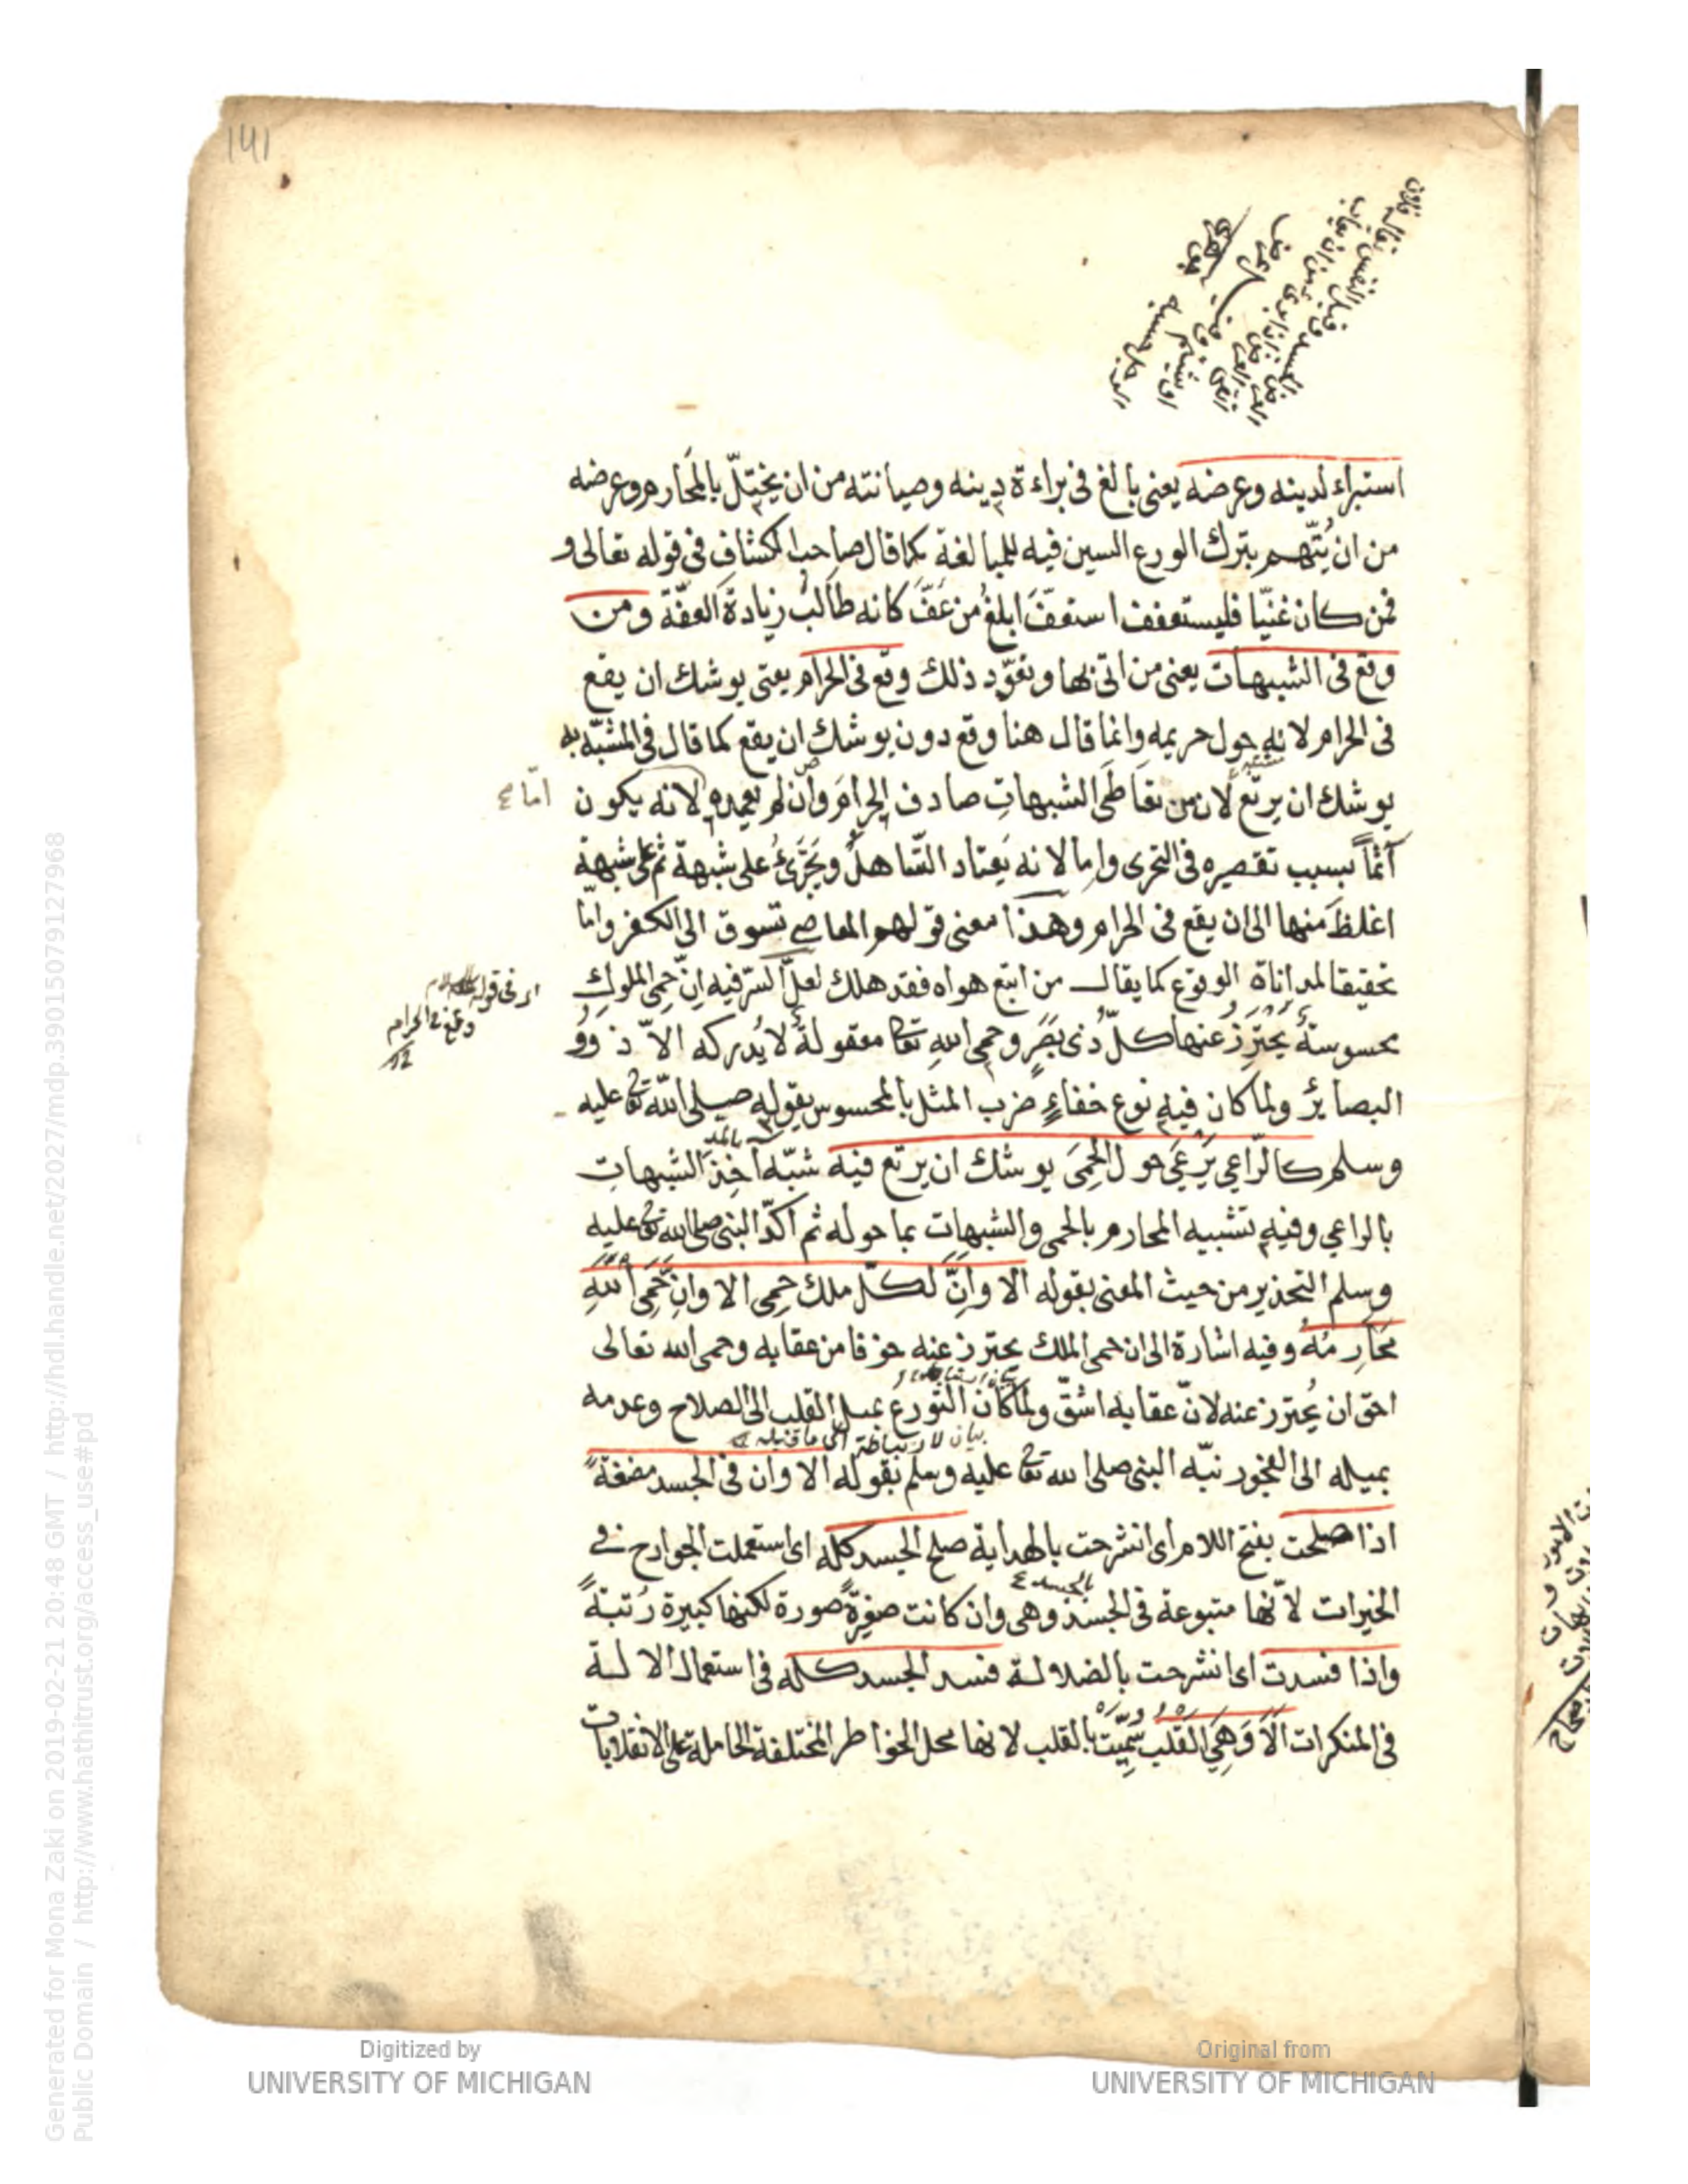 141
استبراء لدينه وعرضه يعنى بالغ فى براءة دينه وصيانته من ان يختلّ بالمحارم وعرضه
من ان يُتّهم بترك الورع السين فيه للمبالغة كما قال صاحب الكشاف فى قوله تعالى و
فمن كان غنيّا فليستعفف استعفّ ابلغُ من عَفّ كانه طالبُ زيادة العفّة ومن
وقع فى الشبهات يعنى من اتى بها وتعوّد ذلك وقع فى الحرام يعنى يوشك ان يقع
فى الحرام لانه حول حريمه وانما قال هنا وقع دون يوشك ان يقع كما قال فى المشبّه به
يوشك ان يرتع لان من تعاطى الشبهاتِ صادف الحرامَ وان لم يعمده لانه يكون
امّا صح
آثماً بسبب تقصيره فى التحرى واما لانه يَعتاد التساهلَ ويَجَرَّئُ على شبهة ثم على شبهة
اغلظَ منها الى ان يقع فى الحرام وهذا معنى قولهم المعاصى تسوق الى الكفر وامّا
تحقيقا لمداناة الوقوع كما يقال من اتبع هواه فقد هلك لعلّ السّر فيه انّ حمى الملوكِ
فى قوله
وقع فى الحرام
محسوسةٌ يحترز عنها كلّ ذى بَصَرٍ وحمى اللهِ تعا معقولةٌ لا يُدركه الاّ ذوو
البصائر ولما كان فيه نوع خفاءٍ ضرب المثل بالمحسوس بقوله صلى اللّه تعا عليه
وسلم كالرّاعى يَرْعَى حول الحِمَى يوشك ان يرتع فيه شبّه آخِذَ الشبهاتِ
بالمد
بالراعى وفيه تشبيه المحارم بالحمى والشبهات بما حوله ثم اكدّ النبى صلى الله تعا عليه
وسلم التحذير من حيث المعنى بقوله الا وانّ لكلّ ملك حِمى الا وانّ حِمَى اللهِ
مَحَارِمُهُ وفيه اشارة الى ان حمى الملك يحترز عنه خوفا من عقابه وحمى الله تعالى
احق ان يُحترز عنه لانّ عقابه اشقّ ولما كان التورع بميل القلب الى الصلاح وعدمه
بيان لارتباطه الى ما قبله
بميله الى الفجور نبّه النبى صلى الله تعا عليه وسلم بقوله الا وان فى الجسد مضغةً
اذا صلحت بفتح اللام اى انشرحت بالهداية صلح الجسد كله اى استعملت الجوارح فى
الخيرات لانّها متبوعة فى الجسد وهى وان كانت صغيرةً صورة لكنها كبيرة رُتبةً
واذا فسدت اى انشرحت بالضلالة فسد الجسد كله فى استعمال الالة
فى المنكرات اَلاَ وَهِىَ القَلْب سُمِّيَتْ بالقلب لانها محل الخواطر المختلفة الحاملة على الانقلابات
Generated for Mona Zaki on 2019-02-21 20:48 GMT / http://hdl.handle.net/2027/mdp.39015079127968
Public Domain / http://www.hathitrust.org/access_use#pd
Digitized by
UNIVERSITY OF MICHIGAN
Original from
UNIVERSITY OF MICHIGAN